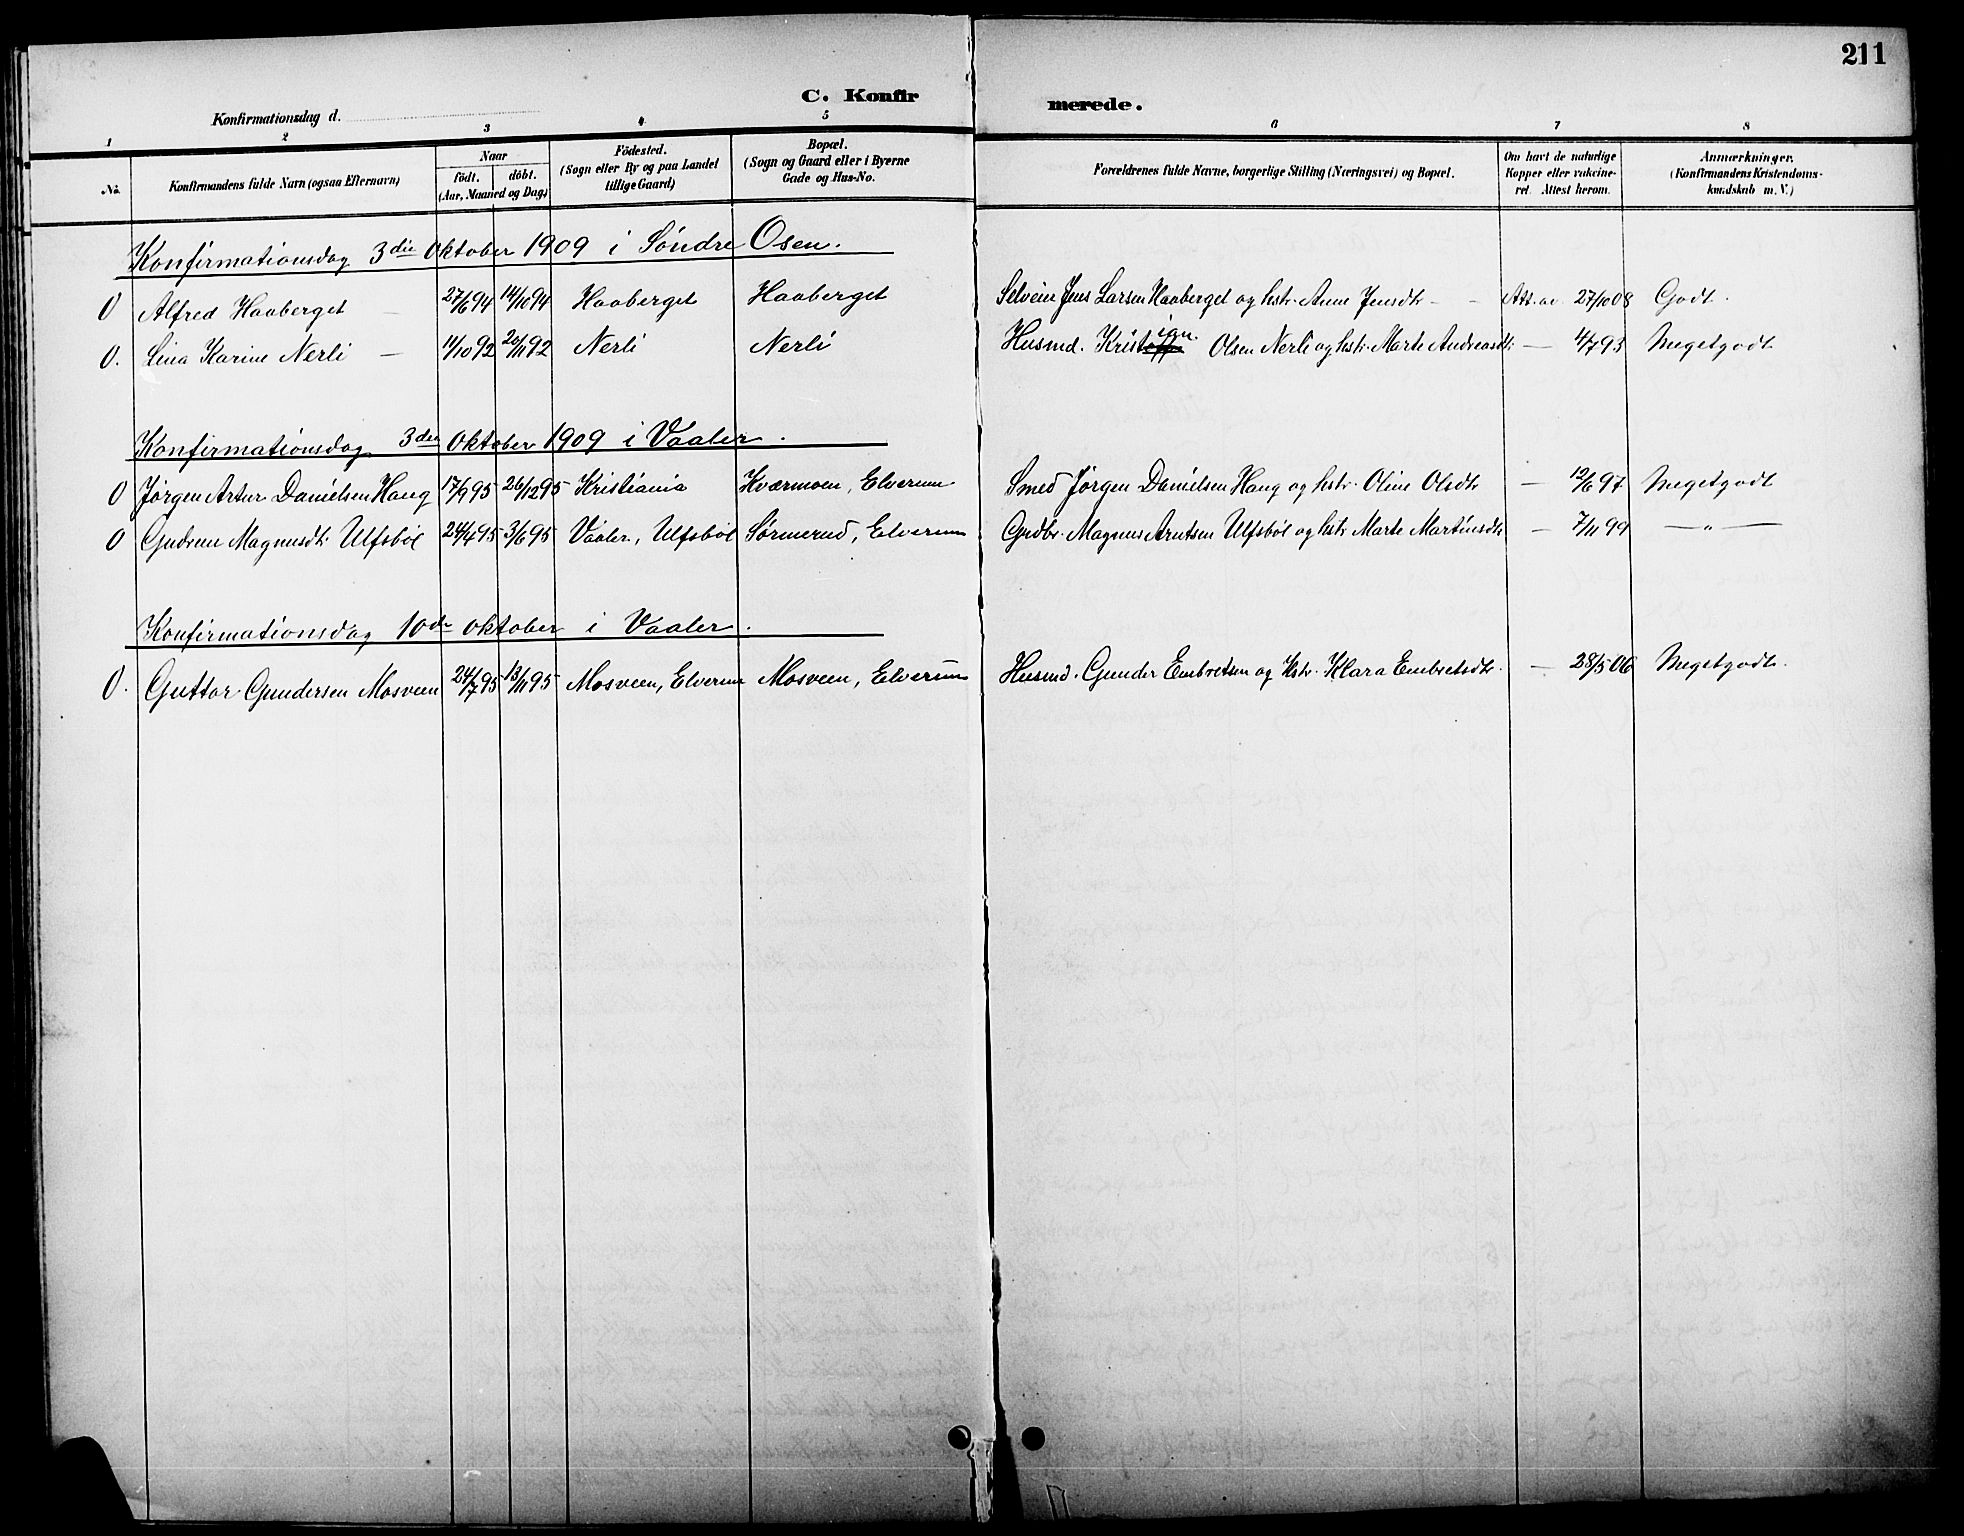 211
C. Konfir merede.
Konfirmationsdag d.
1 2 3 4 5 6 7 8
No. Konfirmandens fulde Navn (ogsaa Efternavn) Naar födt. döbt. (Aar, Maaned og Dag) Födested. (Sogn eller By og paa Landet tillige Gaard) Bopæl. (Sogn og Gaard eller i Byerne Gade og Hus-No. Forældrenes fulde Navne, borgerlige Stilling (Næringsvei) og Bopæl. Om havt de naturlige Kopper eller vakcineret. Attest herom. Anmærkninger. (Konfirmandens Kristendomskundskab m. V.)
Konfirmationsdag 3die Oktober 1909 i Söndre Osen.
0 Alfred Haaberget — 27/6 94 14/10 94 Haaberget Haaberget Selveier Jens Larsen Haaberget og hstr. Anne Jensdtr — — Att. av 27/10 08 Godt.
0. Lina Karine Nerli — 11/10 92 20/11 92 Nerli Nerli Husmd. Kristian Olsen Nerli og hstr. Marte Andreasdtr — 4/7 93 Megetgodt.
Konfirmationsdag 3die Oktober 1909 i Vaaler.
0 Jørgen Artur Danielsen Haug 17/9 95 26/12 95 Kristiania Kværmoen, Elverum Smed Jørgen Danielsen Haug og hstr. Oline Olsdtr — 12/6 97 Megetgodt.
0 Gudrun Magnusdtr. Ulfsböl 24/4 95 3/6 95 Vaaler, Ulfsböl Sørmerud, Elverum Grdbr. Magnus Arntsen Ulfsböl og hstr. Marte Martinsdtr — 7/11 99 — „ —
Konfirmationsdag 10de Oktober i Vaaler.
0. Guttor Gundersen Mosveen 24/7 95 13/11 95 Mosveen, Elverum Mosveen, Elverum Husmd. Gunder Embretsen og Hstr. Klara Embretsdtr. — 28/5 06 Megetgodt.